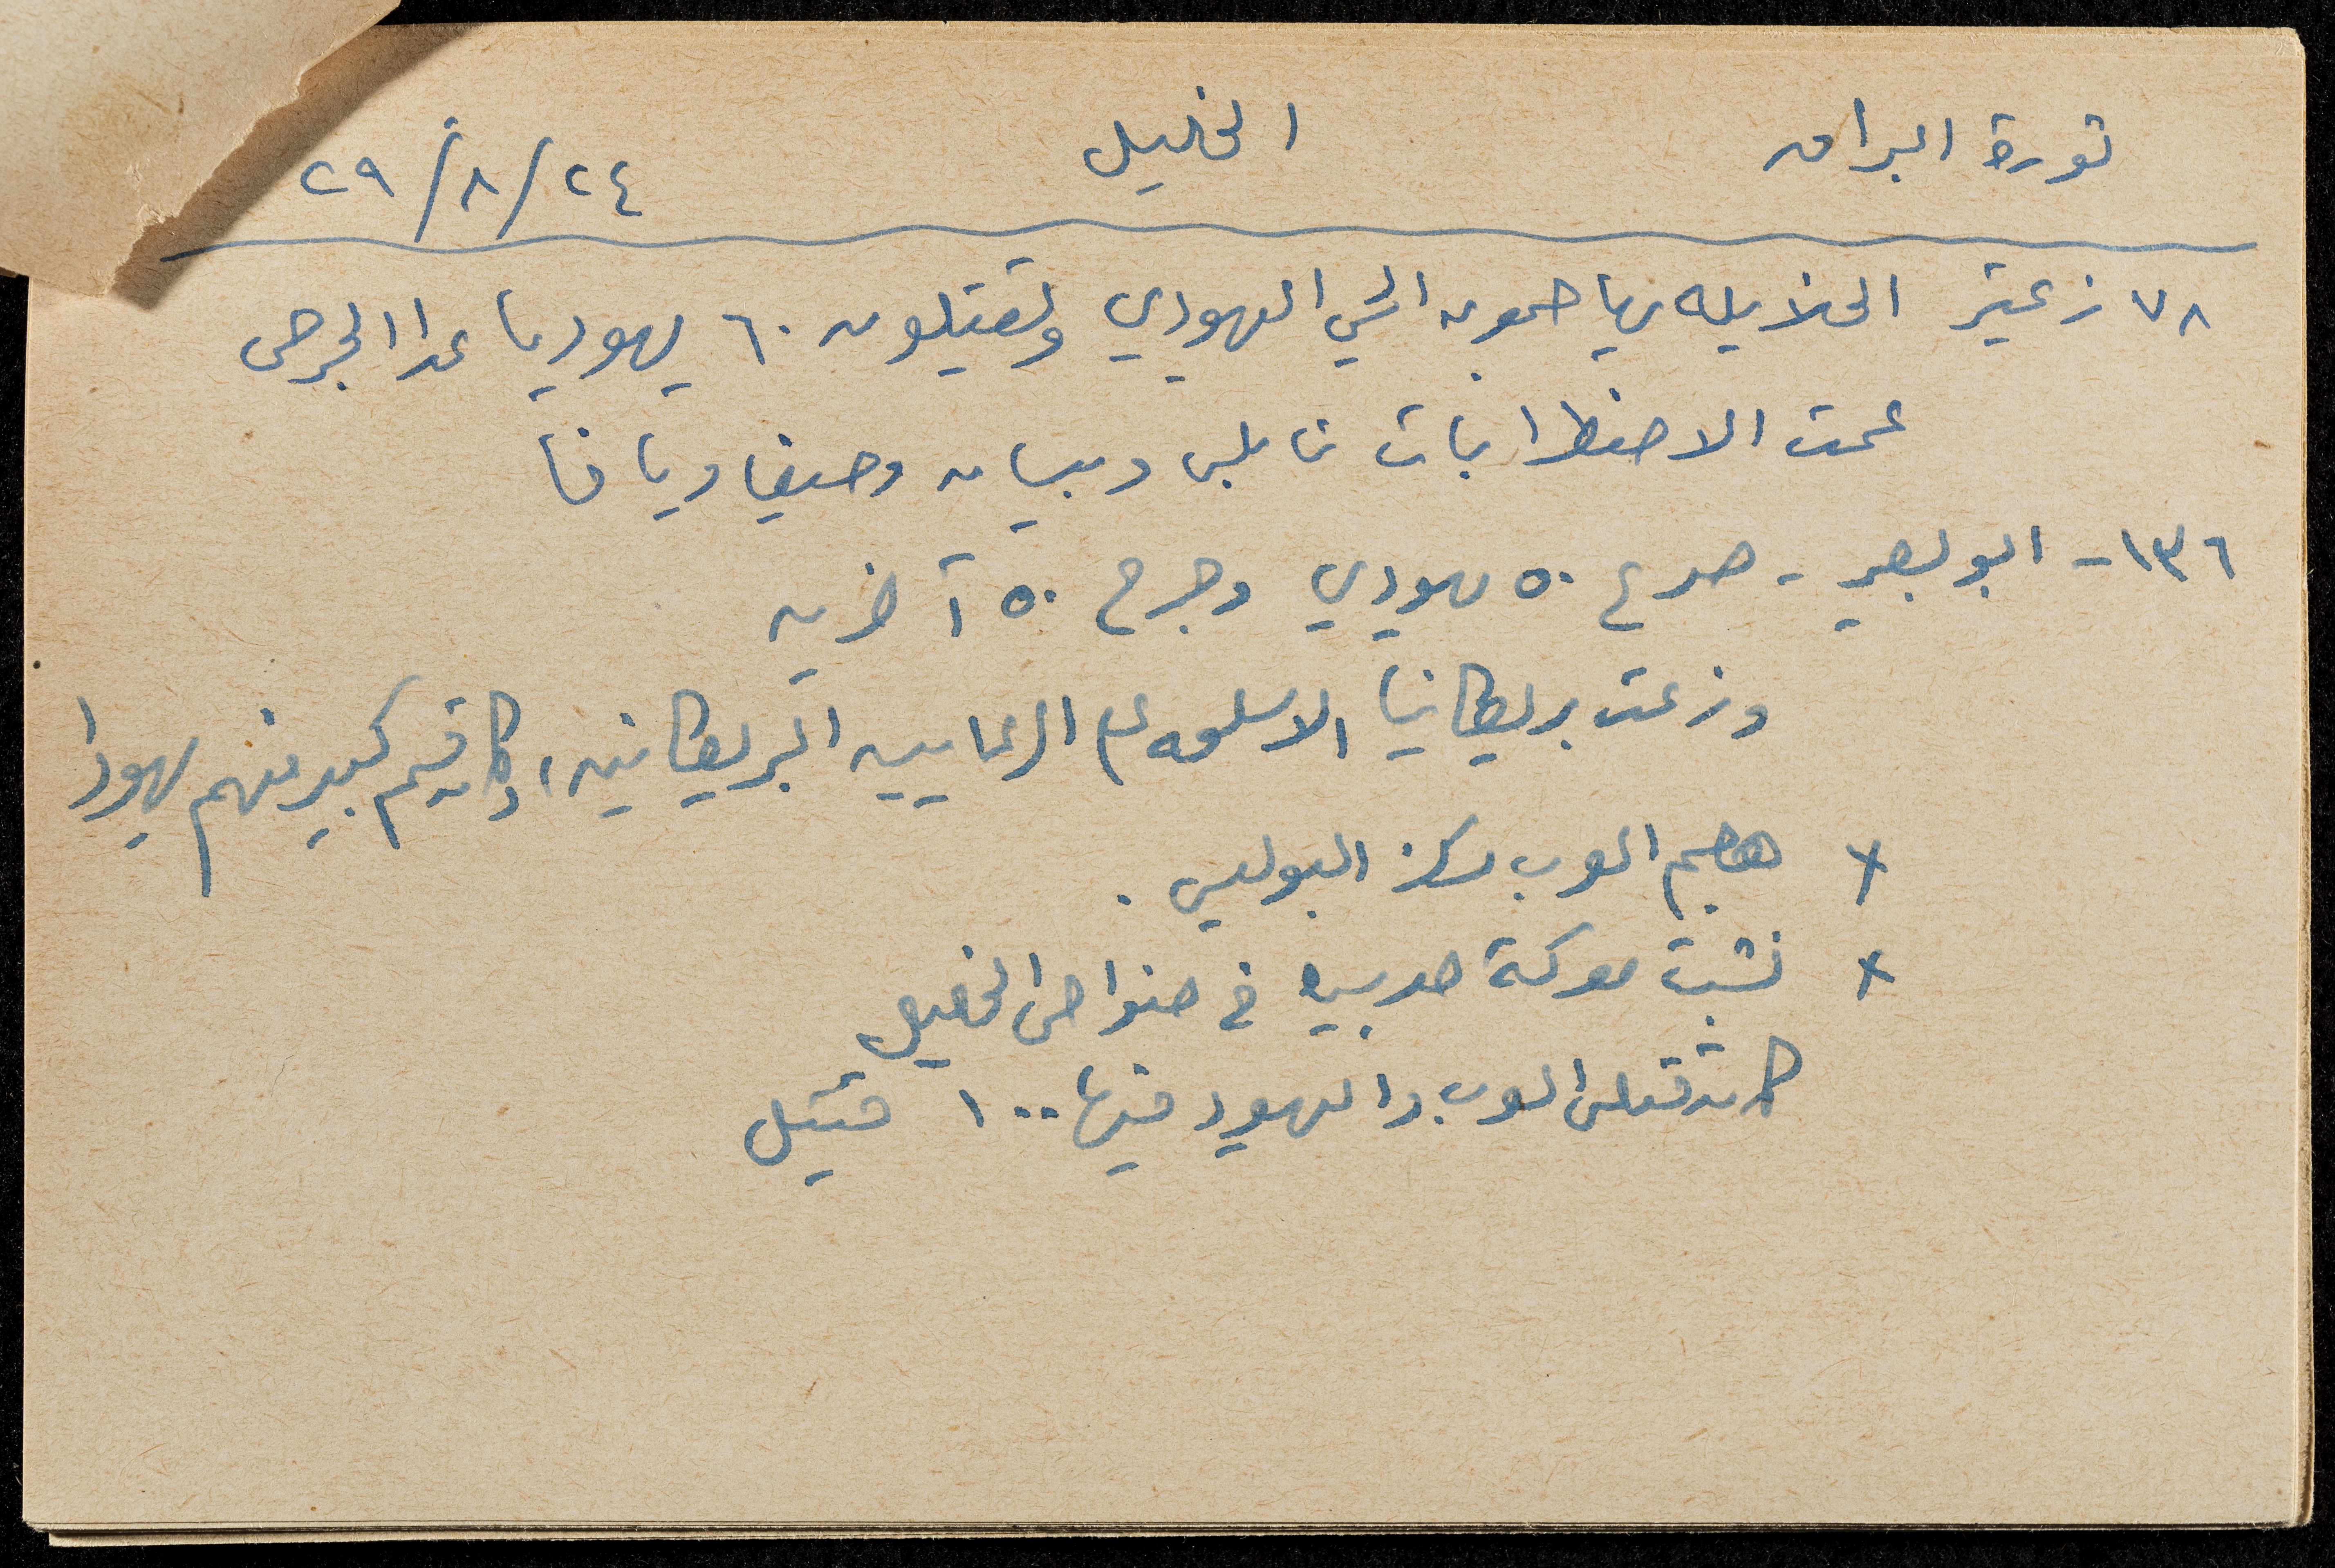 ثورة البراق الخليل ٢٤/٨/٢٩
٧٨ زعيتر الخلايله يهاجمون الحي اليهودي ويقتلون ٦٠ يهوديا عدا الجرحى
عمت الاضطرابات نابلس وبيسان وحيفا ويافا
١٣٦- ابو بصير - صرع ٥٠ يهودي وجرح ٥٠ آخرين
وزعت بريطانيا الاسلحه على الرعايين البريطانين، وكان قسم كبير منهم يهودا
x هجم العرب مركز البوليس.
x نشبت معركة حربيه في ضواحى الخليل
كانت قتلى العرب واليهود فيها ١٠٠ قتيل